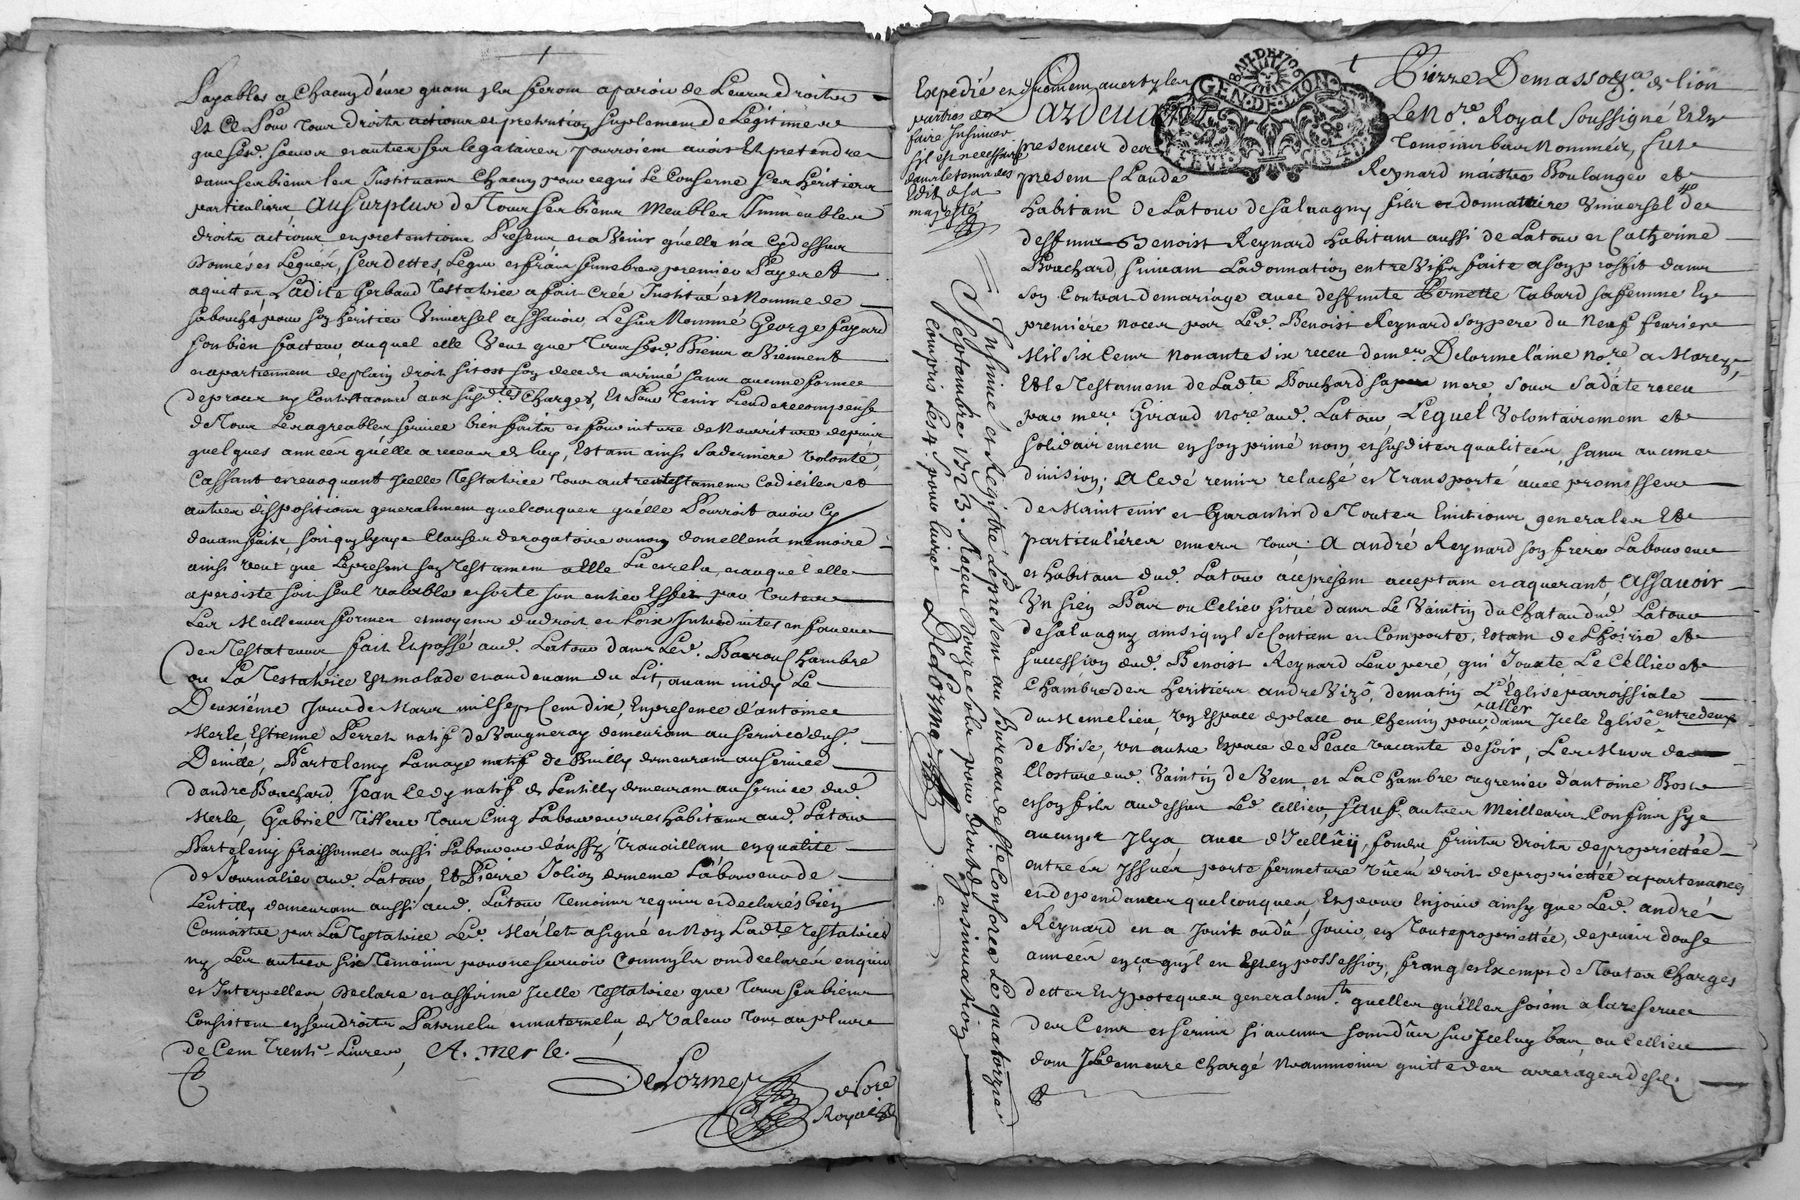 Payables a Chacun d'eux quant ils seront aparoir de Leurs droits
Et Ce Pour tous droits actions et pretention suplement de Légitime
que sesd. soeurs et autres ses legataires pourroient avoir Et pretendre
dans ses biens les Instituant Chacun pour ce qui Le Conserne ses héritiers
particuliers, Au surplus de Tous ses biens Meubles Immeubles
droits actions et pretentions Présens et avenir qu'elle n'a Cy dessus
Donnés et Legués, ses dettes, Legats et frais funebres premier Payer et
aquitter, Ladite Gerbaud Testatrice a fait Créé Institué et Nomme de
sa bouche pour son héritier Universel assavoir Le sieur Nommé George fayard
son bien facteur, auquel elle Veut que Tous sesd. Biens aViennent
et apartiennent de plain droit sitost son decedz arrivé sans aucune forme
de proces ny Contestation aux susd. Charges, Et Pour Tenir Lieu de recompense
de Tous Les agreables services bien faits et fourniture de Nourriture depuis
quelques années qu'elle a receu de luy, Estant ainsi Sa derniere volonté,
Cassant et revoquant Icelle Testatrice Tous autres testamens Codiciles et
autres dispositions generalement quelconques qu'elle Pourroit avoir Cy
devant faits, soit qu'il y aye Clauses derogatoire ou non dont elle n'a mémoire
ainsi veut que Le present son Testament a Elle Lu et relu, et auquel elle
a persiste soit seul valable et sorte son entier Effet par Toutes
Les Meilleures formes et moyens du droit et Loix Introduites en faveur
des Testateurs fait Et passé aud. Latour dans Led. Bas ou Chambre
ou La Testatrice Est malade et au devant du Lit, avant midy Le
Deuxième Jour de Mars mil sept Cent dix, En presence d'antoine
Merle, Estienne Perret natif de Vaugneray demeurant au service dud. s.
Deville, Bartelemy Lamaye natif de Builly demeurant au service
d'andre Bouchard Jean Cedy natif de Lentilly demeurant au service dud.
Merle, Gabriel Tisseur Tous Cinq Laboureurs et habitans aud. Latour
Bartelemy fraissonnet aussi Laboureur d'aussy Travaillant en qualite
de Journalier aud. Latour, Et Pierre Jolion de meme Laboureur de
Lentilly demeurant aussi aud. Latour Temoins requis et declarés bien
Connoistre par La Testatrice Led. Merle et a signé et Non Ladte Testatrice
ny Les autres six Temoins pour ne sçavoir Comm'ils ont declaré enquis
et Interpellés Declare et affirme Icelle Testatrice que Tous ses biens
Consistent en ses droits Paternels et maternels, de Valeur Tout au plus
de Cent Trente Livres, A. merle.
DeLorme
Nore
Royal
Expedié et
parties de
faire Insinuer
s'il est necessaire
dans le tems des
Edits de sa
majesté
GEN. DE LION
Pardevant
Pierre Demassoz a. de lion
Le Nore. Royal Soussigné Et En
presence des
Temoins bas Nommés, fut
present Claude
Reynard maistre Boulanger et
habitant de Latour de Salvagny fils et donnataire Universel de
deffunt Benoist Reynard habitant aussi de Latour et Catherine
Bouchard, suivant La donnation entre Vifs faite a son proffit dans
son Contrat de mariage avec deffunte Pernette Tabard sa femme En
premiere noces par Led. Benoist Reynard son pere du Neuf fevrier
Mil six Cens Nonante six receu de me. Delorme l'aine nore a Marcy,
Et le Testament de Ladte Bouchard sa mere sous sa date receu
par me. Giraud nore. aud. Latour, Lequel Volontairement et
solidairement en son privé nom et susdites qualitées, sans aucune
division; A Cedé remis relaché et Transporté avec promesse
de Maintenir et Garantir de Toutes Evictions generales Et
particulières envers Tous. A andré Reynard son frere Laboureur
et habitant dud. Latour ici present acceptant et aquerant, assavoir
Un sien Bas ou Celier situé dans Le Vaintin du Chatau dud. Latour
de Salvagny ainsi qu'il se Contient et Comporte, Estant de L'hoirie et
succession dud. Benoist Reynard Leur pere, qui Jouxte Le Céllier et
Chambre des heritiers andre Vizé, de matin L'Eglise parroissiale
du Nemelieu, un Espace de place ou Chemin pour aller dans Icelle Eglise entre deux
de Bise, un autre Espace de Place vacante de soir, Les Murs de
Closture dud. Vaintin de Vent, et La Chambre ou grenier d'antoine Bost
et son fils au dessus Led. Cellier, sauf autres Meilleurs Confins sy
aucuns Il y a, avec d'Icelluy, fonds fruits droits de proprietée
entrées issues porte fermeture Vües droit de proprietée apartenances
et dependances quelconques, Et pour En jouir ainsy que Led. andré
Reynard en a Jouit ou dû Jouir, en Toute proprietée, depuis douse
années en ça qu'il en Est en possession, frang et Exempt de Toutes Charges
dettes Et ypoteques generalemt. quelles qu'Elles soient a la reserve
des Cens et servis si aucuns sont dûs sur Icelluy bas, ou Cellier
dont Il demeure Chargé Neanmoins quitte des arrerages desd.
Insinué et Registré Le present au Bureau de ste Consorce Le quatorze
Septembre 1713. Receu Douze sols pour droit d'Insinuation
Compris Les 4. s. pour livre DeLorme